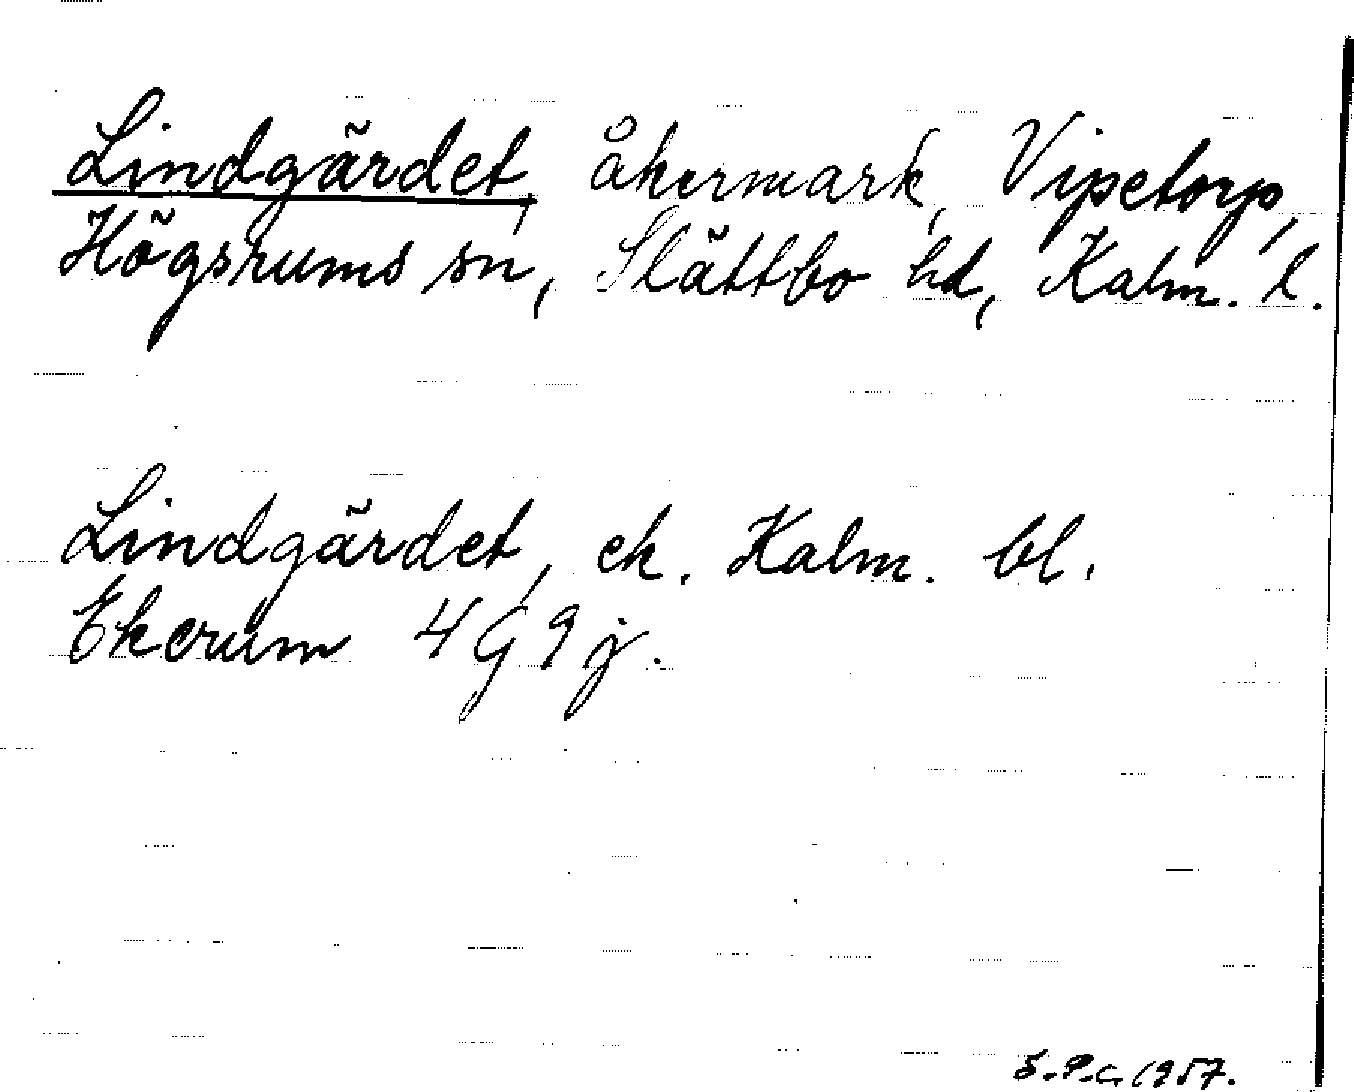 Lindgärdet, åkermark, Vipetorp,
Högsrums sn, Slättbo hd, Kalm. l.
Lindgärdet, ek. Kalm. bl.
Ekerum 4G9j.
S.P.G. 1957.